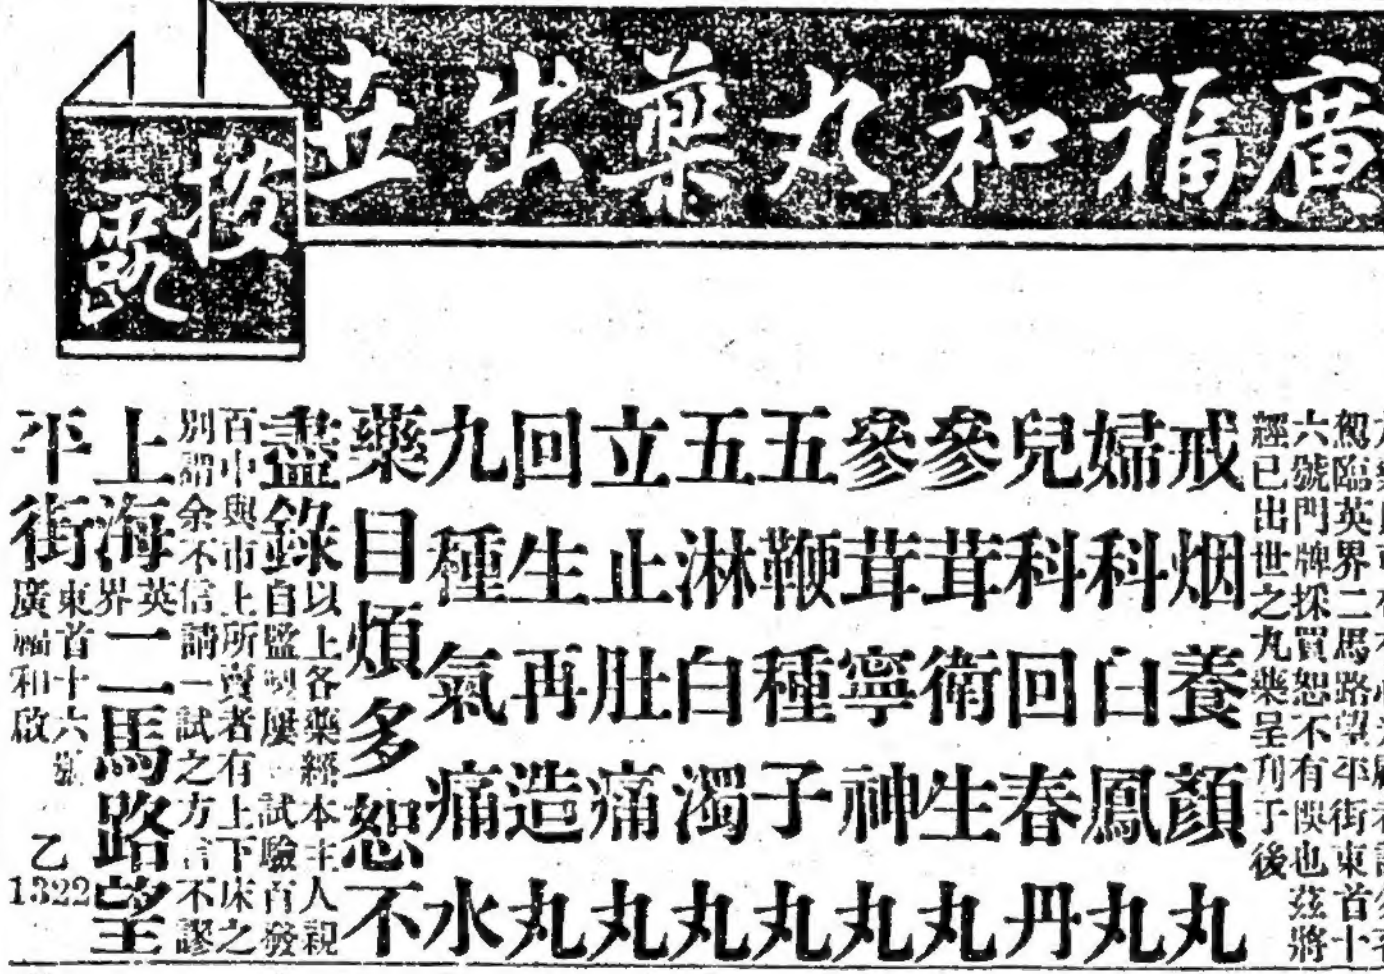 廣福和丸藥出世
駕臨英界二馬路望平街東首十
六號門牌採買恕不有悞也茲將
經已出世之丸藥呈刋于後
戒烟養顏丸
婦科白鳳丸
兒科回春丹
參茸衛生丸
參茸寧神丸
五鞭種子丸
五淋白濁丸
立止肚痛丸
回生再造丸
九種氣痛水
藥目煩多恕不
盡錄
以上各藥經本主人親
自監製屢一試驗百發
百中與市上所賣者有上下床之
別謂余不信請一試之方言不謬
上海英界二馬路望
平街東首十六號
廣福和啟
乙1322